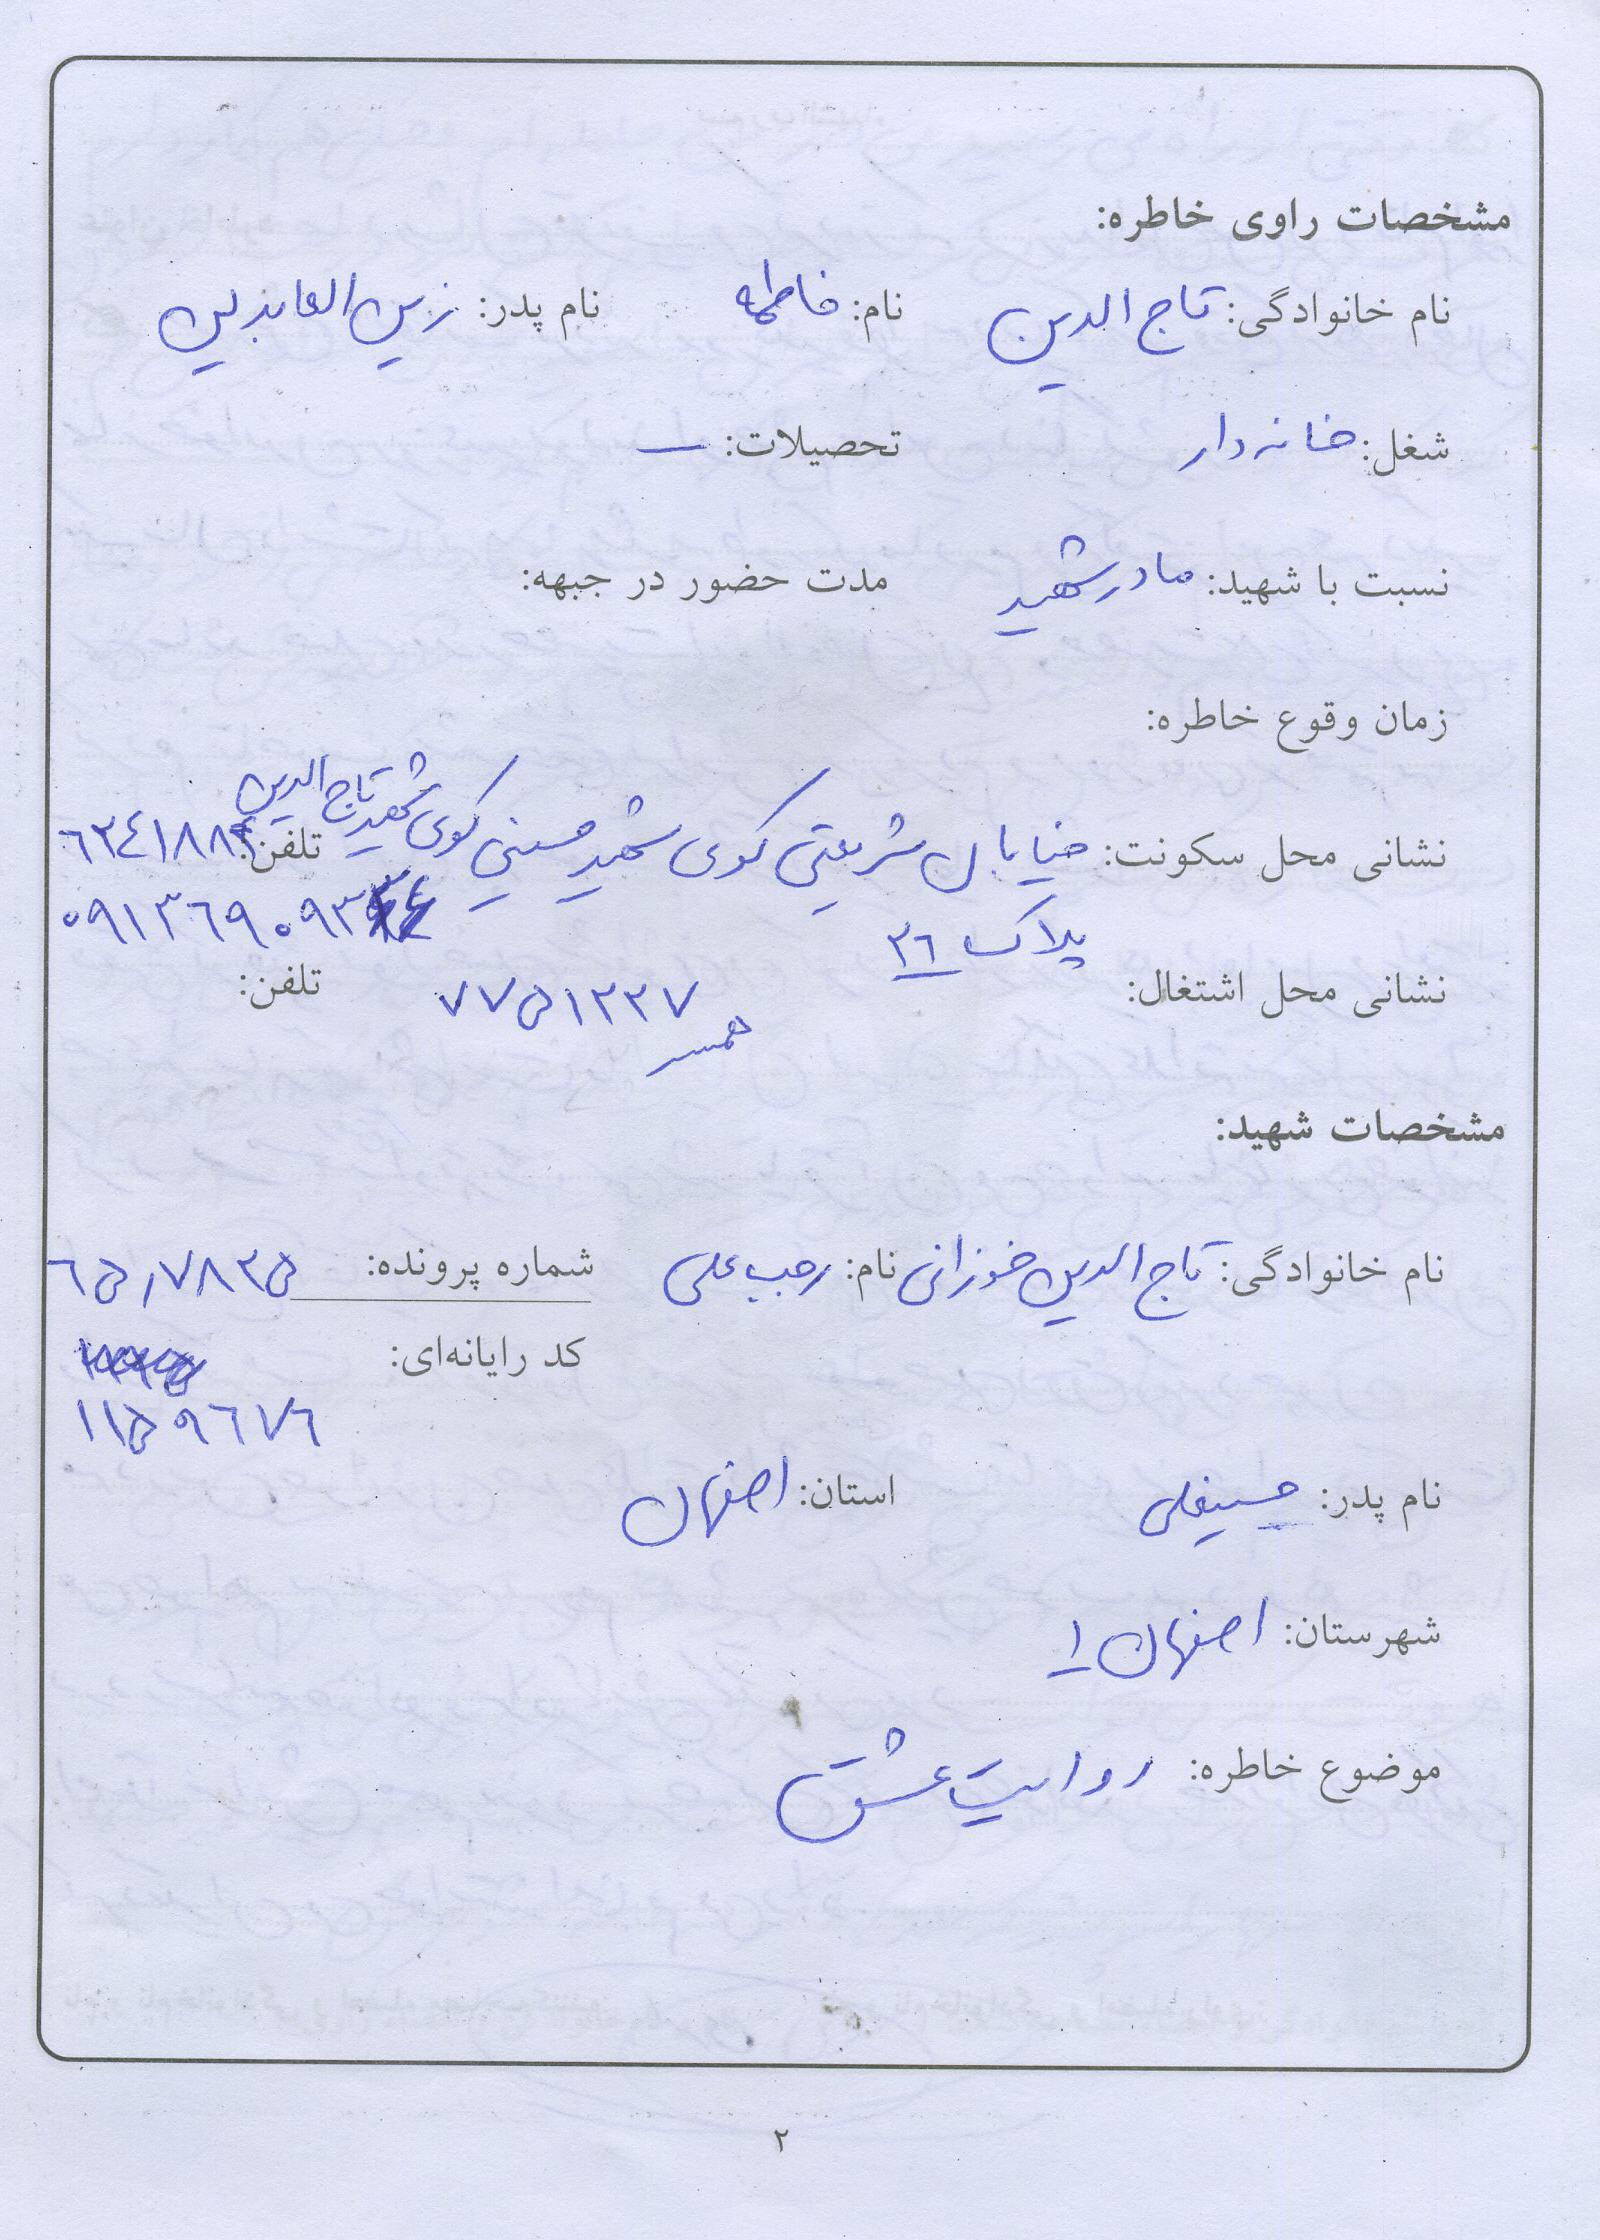 مشخصات راوی خاطره:
نام خانوادگی: تاج الدین نام: فاطمه نام پدر: زین العابدین
شغل: خانه دار تحصیلات: ـــ
نسبت با شهید: مادر شهید مدت حضور در جبهه:
زمان وقوع خاطره:
نشانی محل سکونت: خیابان شریعتی کوی شهید حسینی کوی شهید تاج الدین تلفن: ۶۲۴۱۸۸۳
پلاک ۳۶ ۰۹۱۳۶۹۰۹۳
نشانی محل اشتغال: ۷۷۵۱۲۲۷ تلفن:
همسر
مشخصات شهید:
نام خانوادگی: تاج الدین خوزانی نام: رجبعلی شماره پرونده: ۶۵٫۷۸۳۵
کد رایانه‌ای:
۱۱۵۹۶۷۶
نام پدر: حسینعلی استان: اصفهان
شهرستان: اصفهان ۱
موضوع خاطره: روایت عشق
۲